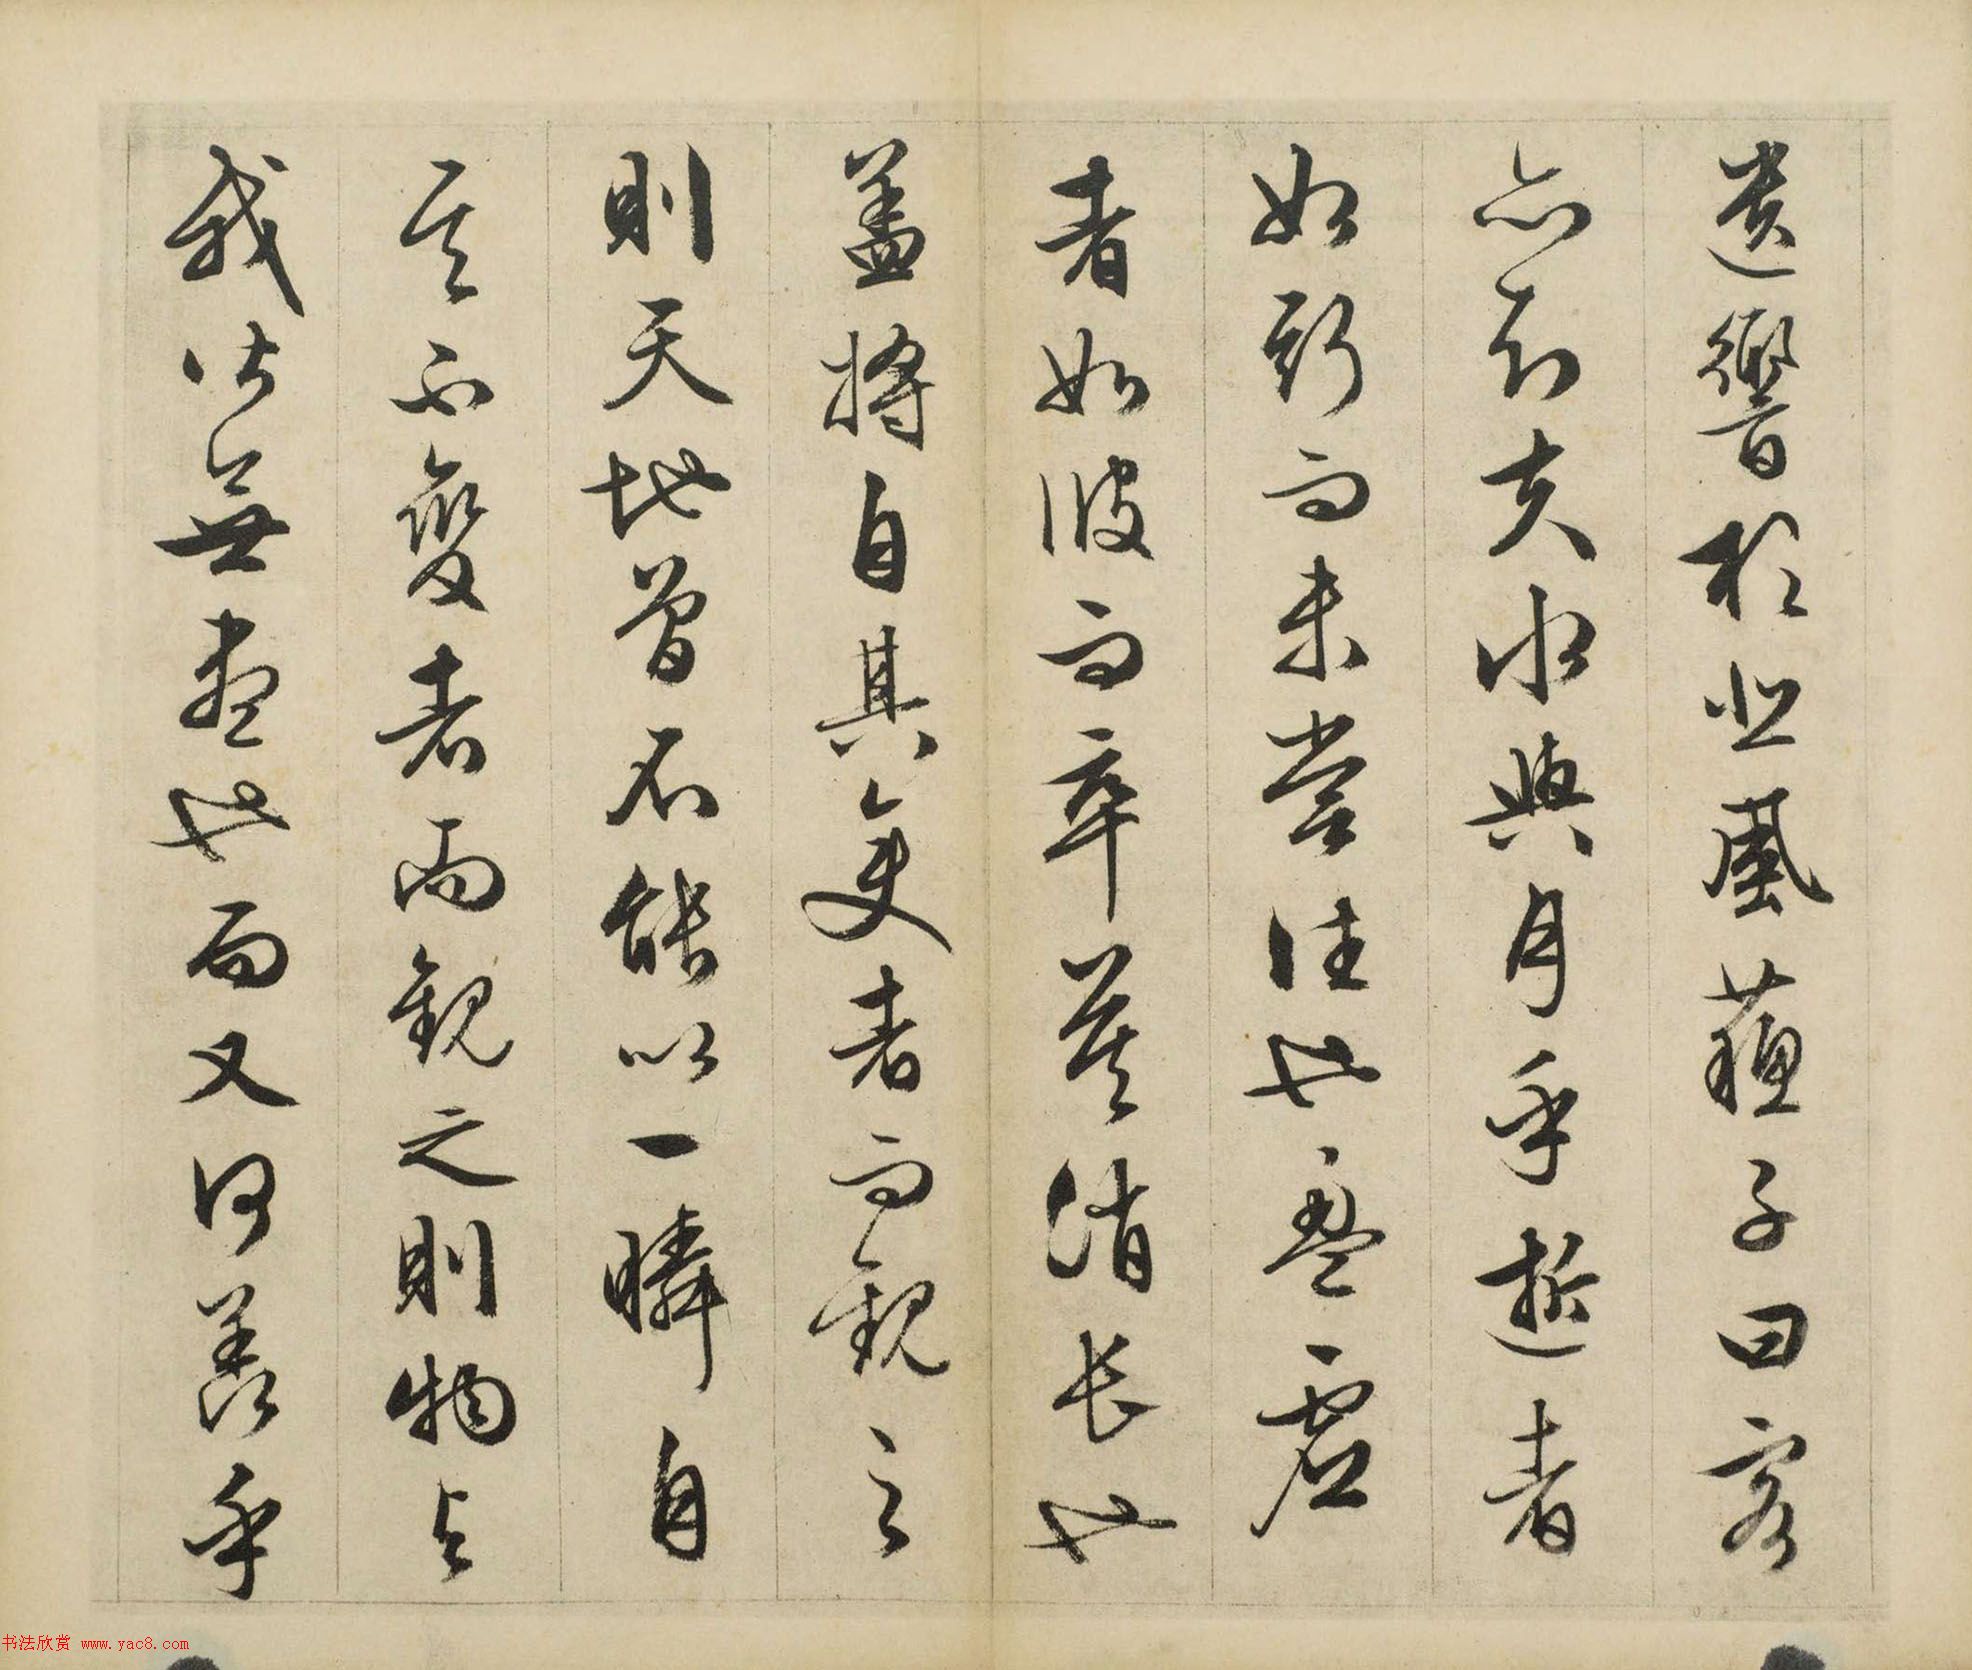 遺響於悲風蘇子曰客
亦知夫水與月乎逝者
如斯而未嘗往也盈虛
者如彼而卒莫消長也
盖將自其變者而觀之
則天地曾不能以一瞬自
其不變者而觀之則物與
我皆無盡也而又何羨乎
书法欣赏 www.yac8.com